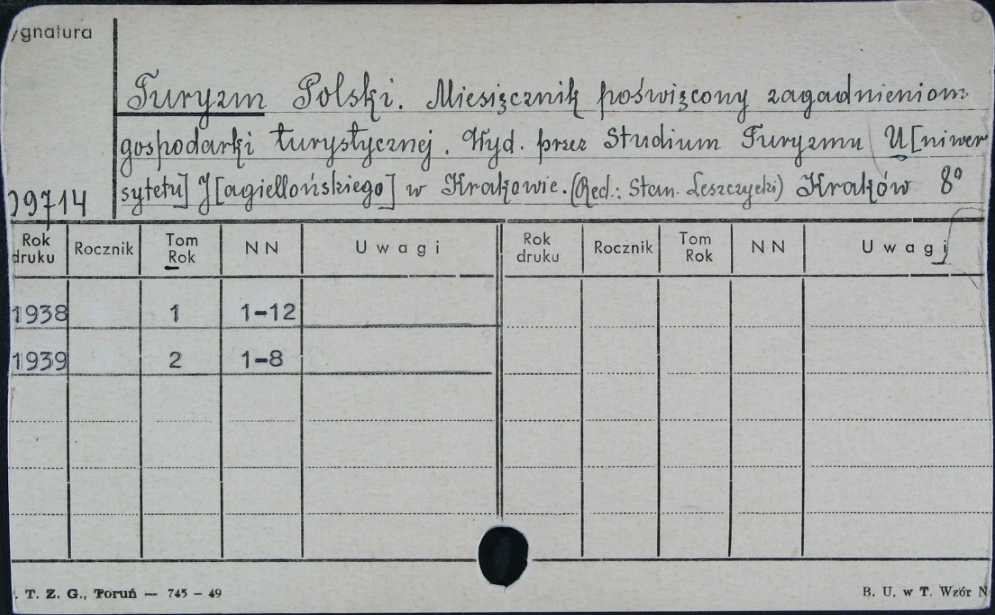 ygnatura
Turyzm Polski. Miesięcznik poświęcony zagadnieniom
gospodarki turystycznej. Wyd. przez Studium Turyzmu U[niwer
sytetu] J[agiellońskiego] w Krakowie. (Red.: Stan. Leszczycki) Kraków 8°
09714
Rok druku Rocznik Tom Rok NN Uwagi Rok druku Rocznik Tom Rok NN Uwagi
1938 1 1-12
1939 2 1-8
. T. Z. G., Toruń — 745 - 49 B. U. w T. Wzór N